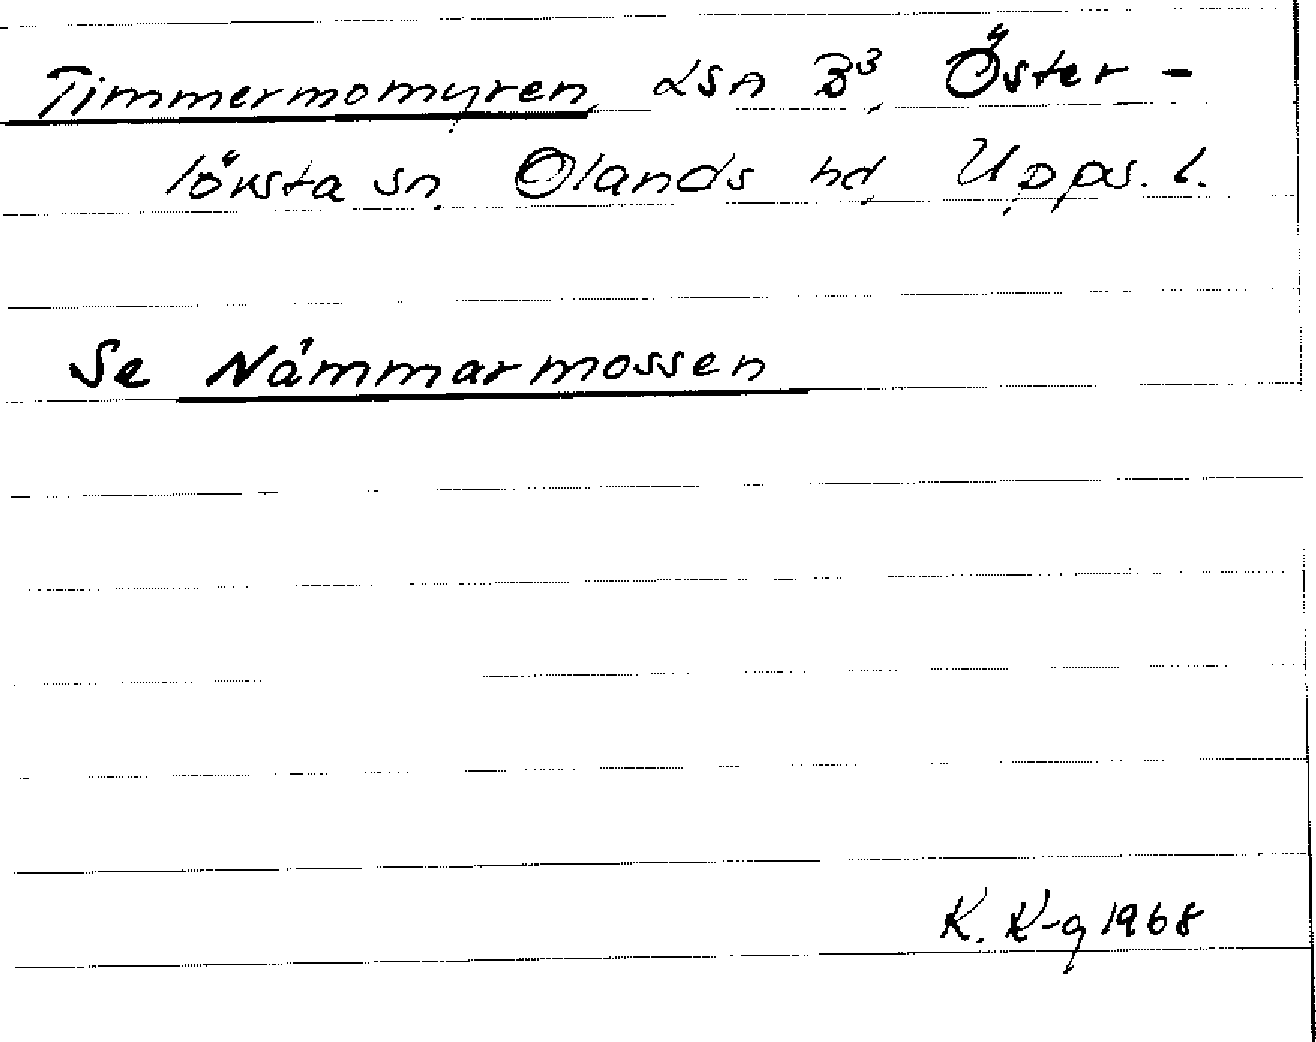 Timmermomyren, Lsn B³, Öster-
löksta sn, Olands hd, Upps. l.
Se Nåmmarmossen
K. K-g 1968